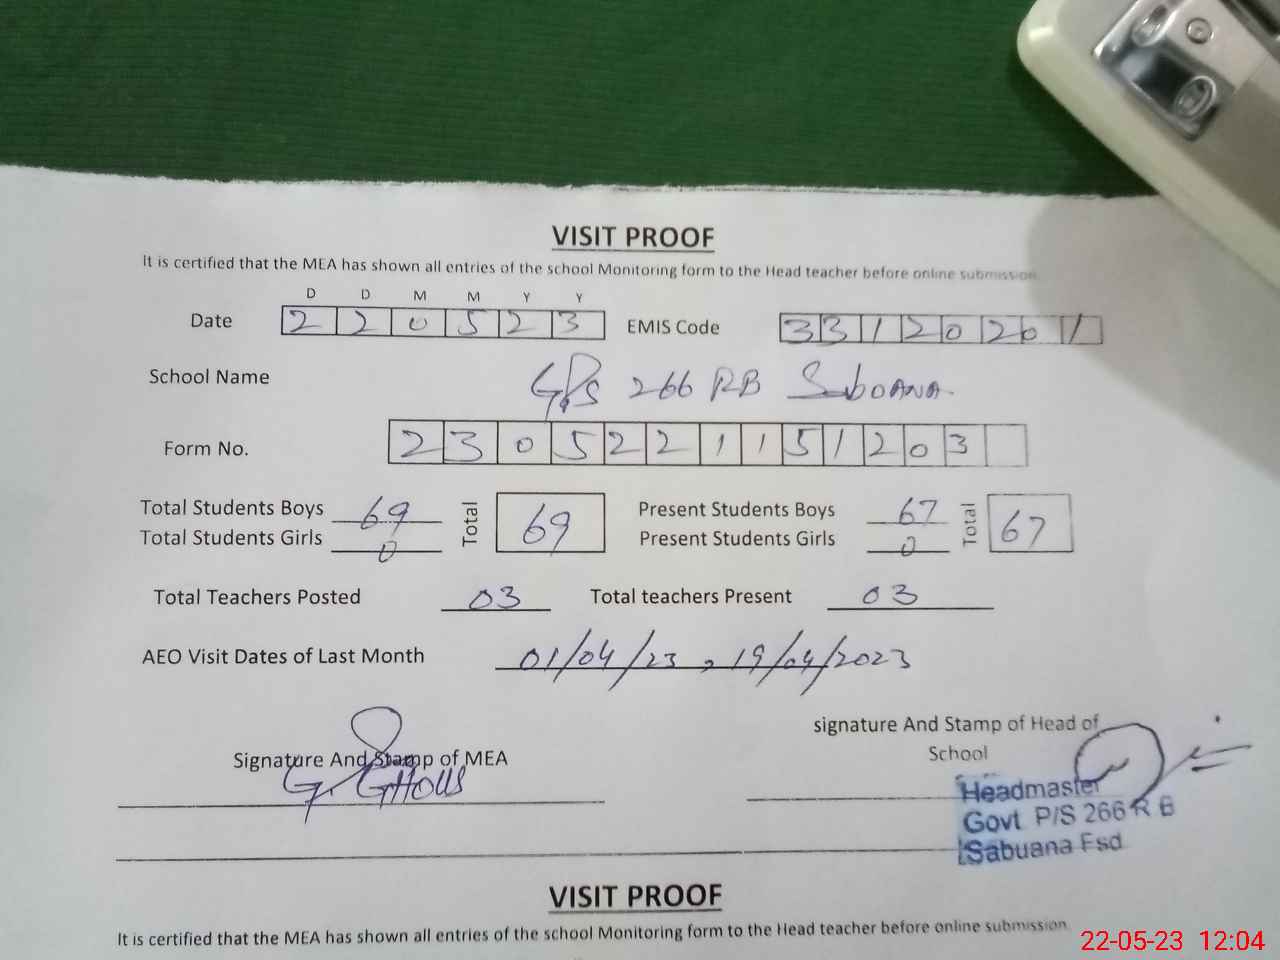 VISIT PROOF
It is certified that the MEA has shown all entries of the school Monitoring form to the Head teacher before online submission
D D M M Y Y
Date 2 2 0 5 2 3 EMIS Code 3 3 1 2 0 2 0 1
School Name GPS 266 RB SuboANA.
Form No. 2 3 0 5 2 2 1 1 5 1 2 0 3
Total Students Boys 69 Total 69 Present Students Boys 67 Total 67
Total Students Girls 0 Present Students Girls 0
Total Teachers Posted 03 Total teachers Present 03
AEO Visit Dates of Last Month 01/04/23, 19/04/2023
signature And Stamp of Head of
School
Signature And Stamp of MEA
G. GHOUS
Headmaster
Govt P/S 266 R B
Sabuana Fsd
VISIT PROOF
It is certified that the MEA has shown all entries of the school Monitoring form to the Head teacher before online submission.
22-05-23 12:04